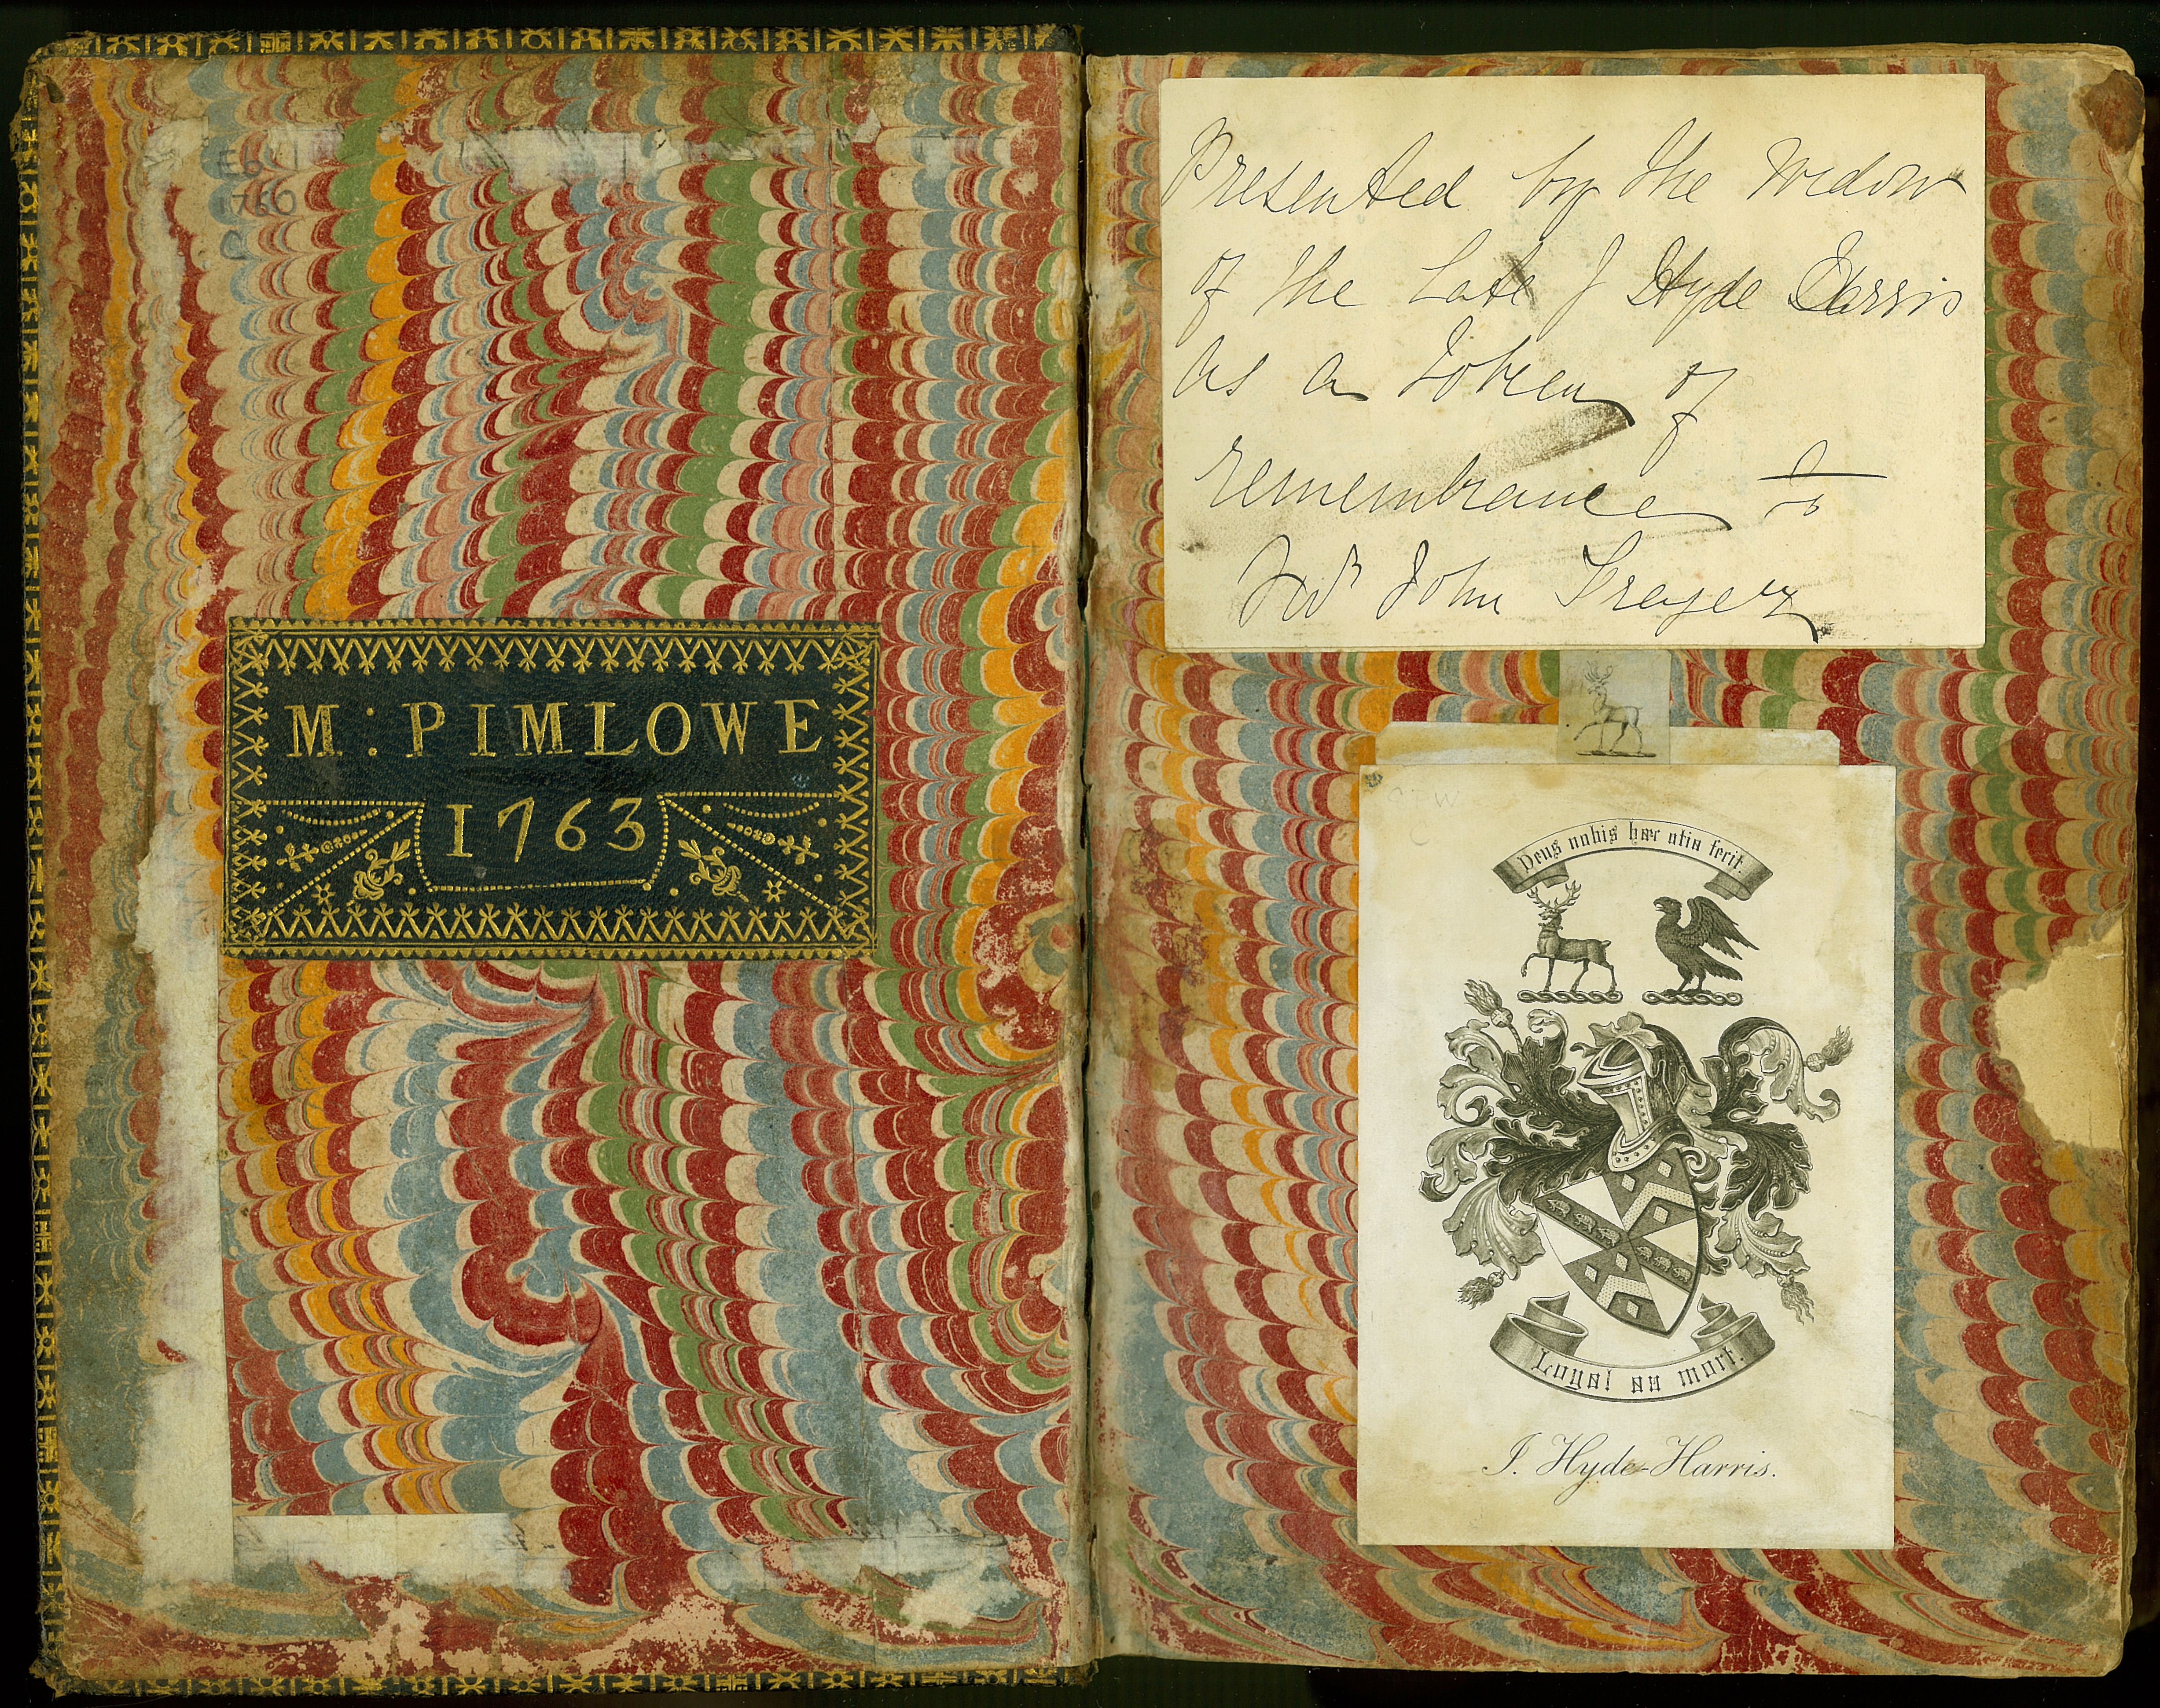 E6
1760
C
M : PIMLOWE
1763
Presented by the Widow
of the Late J Hyde Harris
as a Token of
remembrance to
John
Deus nobis hæc otia fecit.
Loyal au mort.
J. Hyde-Harris.